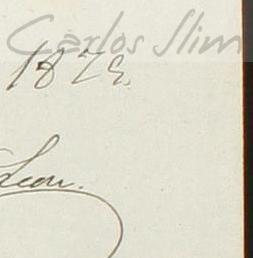 Carlos Slim
1879.
Leon.